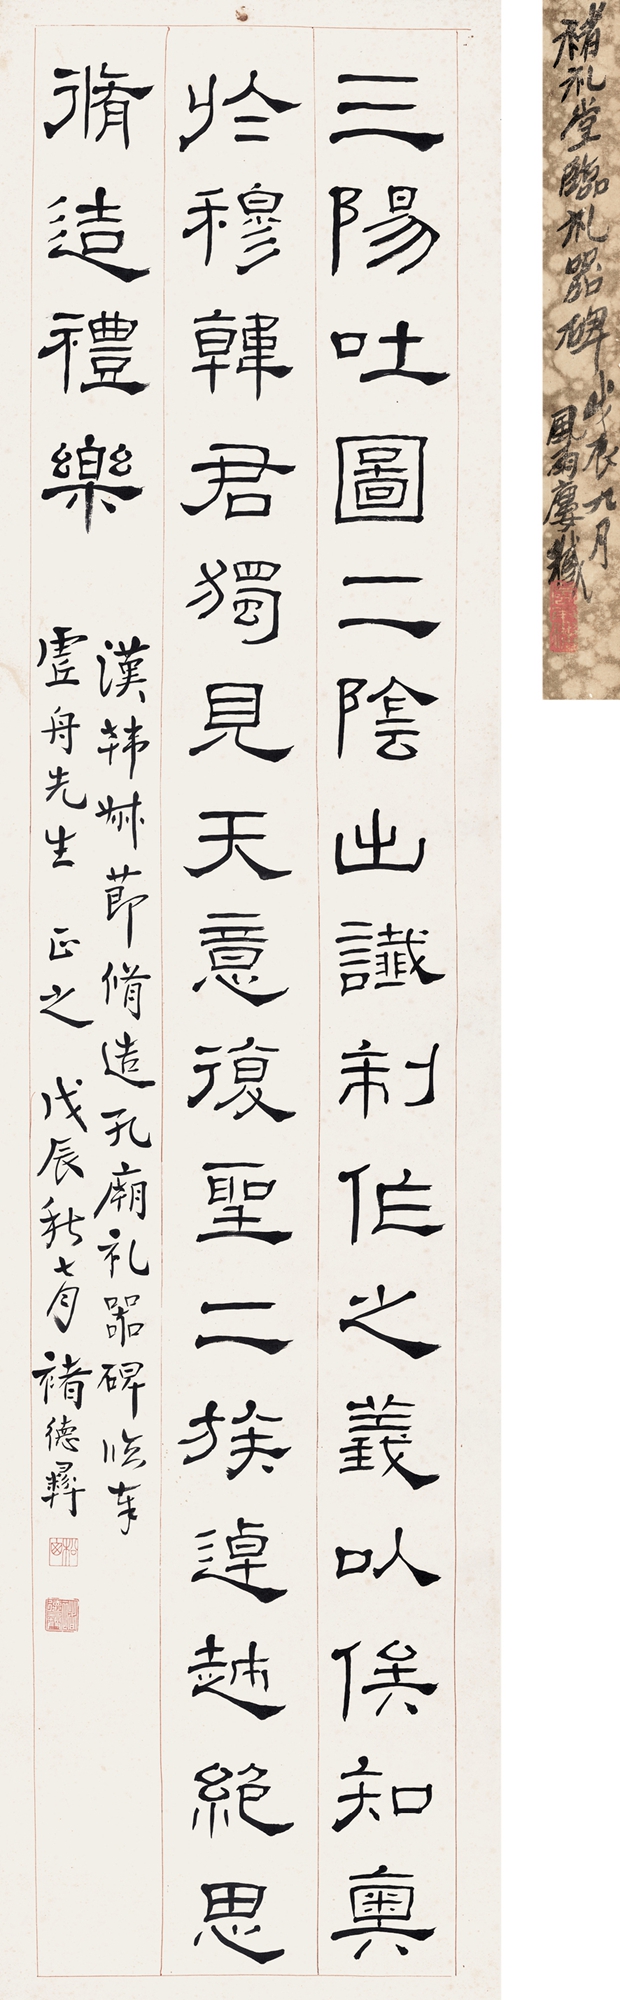 褚礼堂臨礼器碑
戊辰九月
風雨廔藏
三陽吐圖二陰出讖制作之義以俟知奧
於穆韓君獨見天意復聖二族逴越絕思
脩造禮樂
漢韓叔節脩造孔廟礼器碑臨奉
虛舟先生 正之 戊辰秋七月 褚德彝
松窗